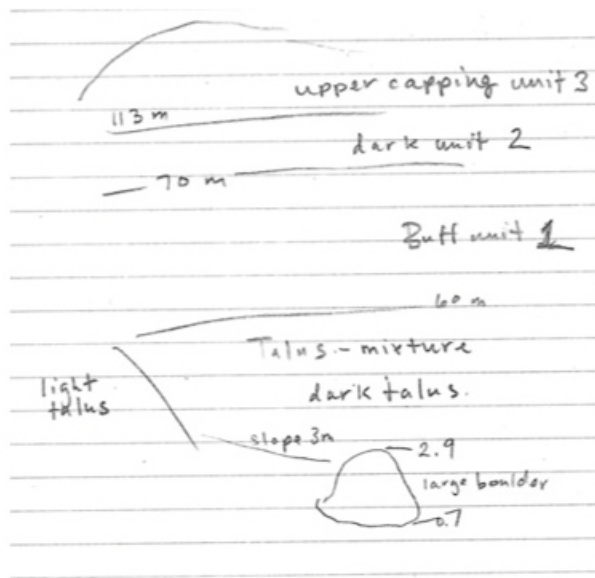 upper capping unit 3
113 m
dark unit 2
70 m
Buff unit 1
60 m
Talus - mixture
dark talus.
light
talus
slope 3m
2.9
large boulder
0.7